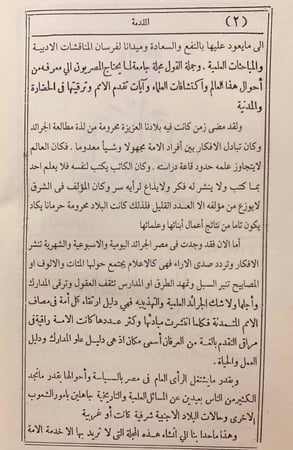 (٢) المقدمة
الى مايعود عليها بالنفع والسعادة وميدانا لفرسان المناقشات الادبية
والمباحثات العلمية . وجملة القول مجلة جامعة لما يحتاج المصريون الي معرفه من
أحوال هذا العالم واكتشافات العلماء وآيات تقدم الامم وترقيتها في الحضارة
والمدنية
ولقد مضى زمن كانت فيه بلادنا العزيزة محرومة من لذة مطالعة الجرائد
وكان تبادل الافكار بين أفراد الامة مجهولا وشيأ معدوما . فكان العالم
لايتجاوز علمه حدود قاعة دراسته . وكان الكاتب يكتب لنفسه فلا يعلم احد
بما كتب ولا ينشر له فكر ولايذاع لرأيه سر وكان المؤلف في الشرق
لايوزع من مؤلفه الا العدد القليل فلذلك كانت البلاد محرومة حرمانا يكاد
يكون تاما من نتائج أعمال أبنائها وعلمائها
أما الان فقد وجدت فى مصر الجرائد اليومية والاسبوعية والشهرية تنشر
الافكار وتردد صدى الاراء فهى كالاعلام يجتمع حولها المئات والالوف او
المصابيح تنير السبل وتمهد الطرق او المدارس تثقف العقول وترقى المدارك
وأجلها ولا شك الجرائد العلمية والتهذيبية فهي دليل ارتقاء كل أمة في مصاف
الامم المتمدنة فكلما انتشرت مبادئها وكثر عددها كانت الامة راقية في
مراقى التقدم بالغة من العرفان أسمى مكان اذ هى دليل علو المدارك ودليل
العمل والحياة .
وبقدر مايشتغل الرأى العام في مصر بالسياسة وأحوالها بقدر مانجد
الكثير من الناس بعيدين عن المسائل العلمية والتاريخية جاهلين بامور الشعوب
الاخرى وحالات البلاد الاجنبية شرقية كانت أو غربية
وهذا ماحدا بنا الي انشاء هذه المجلة التى لا نريد بها الا خدمة الامة